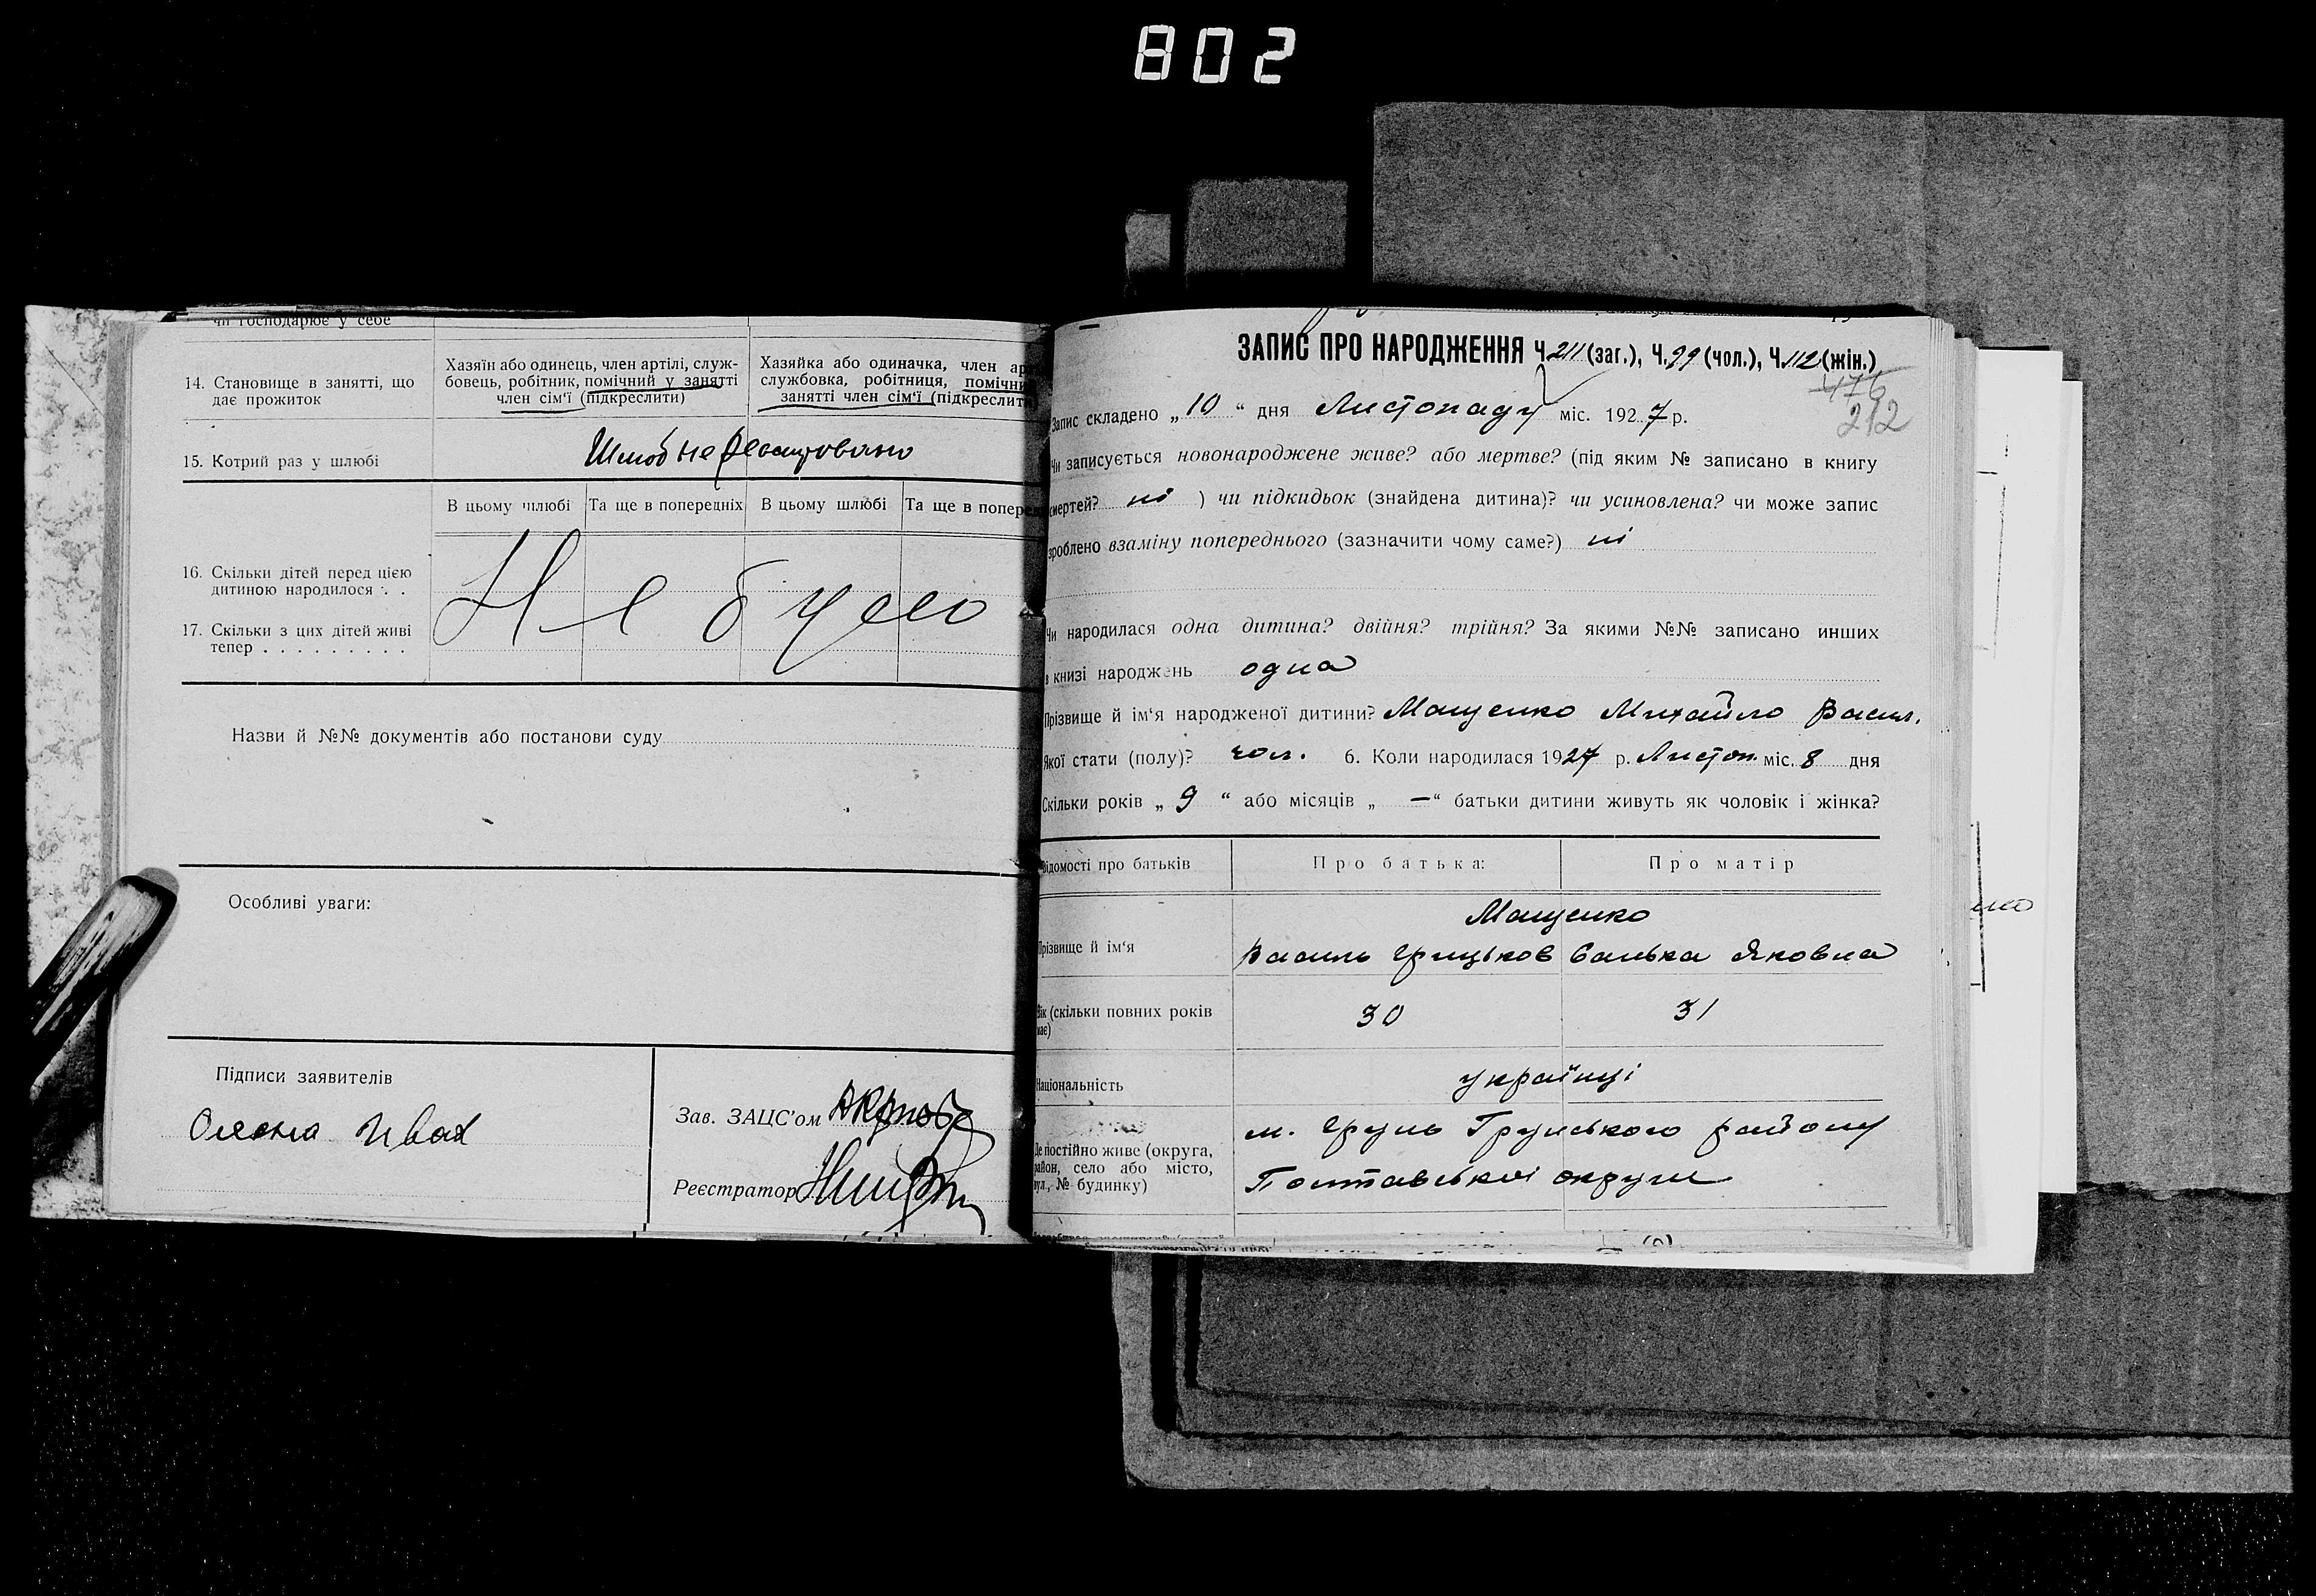 802
чи господарює у себе
14. Становище в занятті, що дає прожиток
Хазяїн або одинець, член артілі, служ-
бовець, робітник, помічний у занятті
член сім'ї (підкреслити)
Хазяйка або одиначка, член ар
службовка, робітниця, помічни
занятті член сім'ї (підкреслити
15. Котрий раз у шлюбі
Шлюб не
В цьому шлюбі Та ще в попередніх В цьому шлюбі Та ще в поперед
16. Скільки дітей перед цією
дитиною народилося . .
17. Скільки з цих дітей живі
тепер . . . . . . . . .
Не було
Назви й №№ документів або постанови суду
Особливі уваги:
Підписи заявителів
Олена Ивах
Зав. ЗАЦС'ом
Реєстратор
ЗАПИС ПРО НАРОДЖЕННЯ Ч 211 (заг.), Ч. 99 (чол.), Ч. 112 (жін.)
476
212
Запис складено „10“ дня Листопаду міс. 1927 р.
Чи записується новонароджене живе? або мертве? (під яким № записано в книгу
смертей? ні ) чи підкидьок (знайдена дитина)? чи усиновлена? чи може запис
зроблено взаміну попереднього (зазначити чому саме?) ні
Чи народилася одна дитина? двійня? трійня? За якими №№ записано инших
в книзі народжень одна
Прізвище й ім'я народженої дитини? Мащенко Михайло Васил.
Якої стати (полу)? чол. 6. Коли народилася 1927 р. Листоп. міс. 8 дня
Скільки років „9“ або місяців „—“ батьки дитини живуть як чоловік і жінка?
Відомості про батьків Про батька: Про матір
Мащенко
Прізвище й ім'я Василь Грицьков Санька Яковна
Вік (скільки повних років має) 30 31
Національність українці
Де постійно живе (округа,
район, село або місто,
вул., № будинку)
м. Грунь Грунського району
Полтавської округи